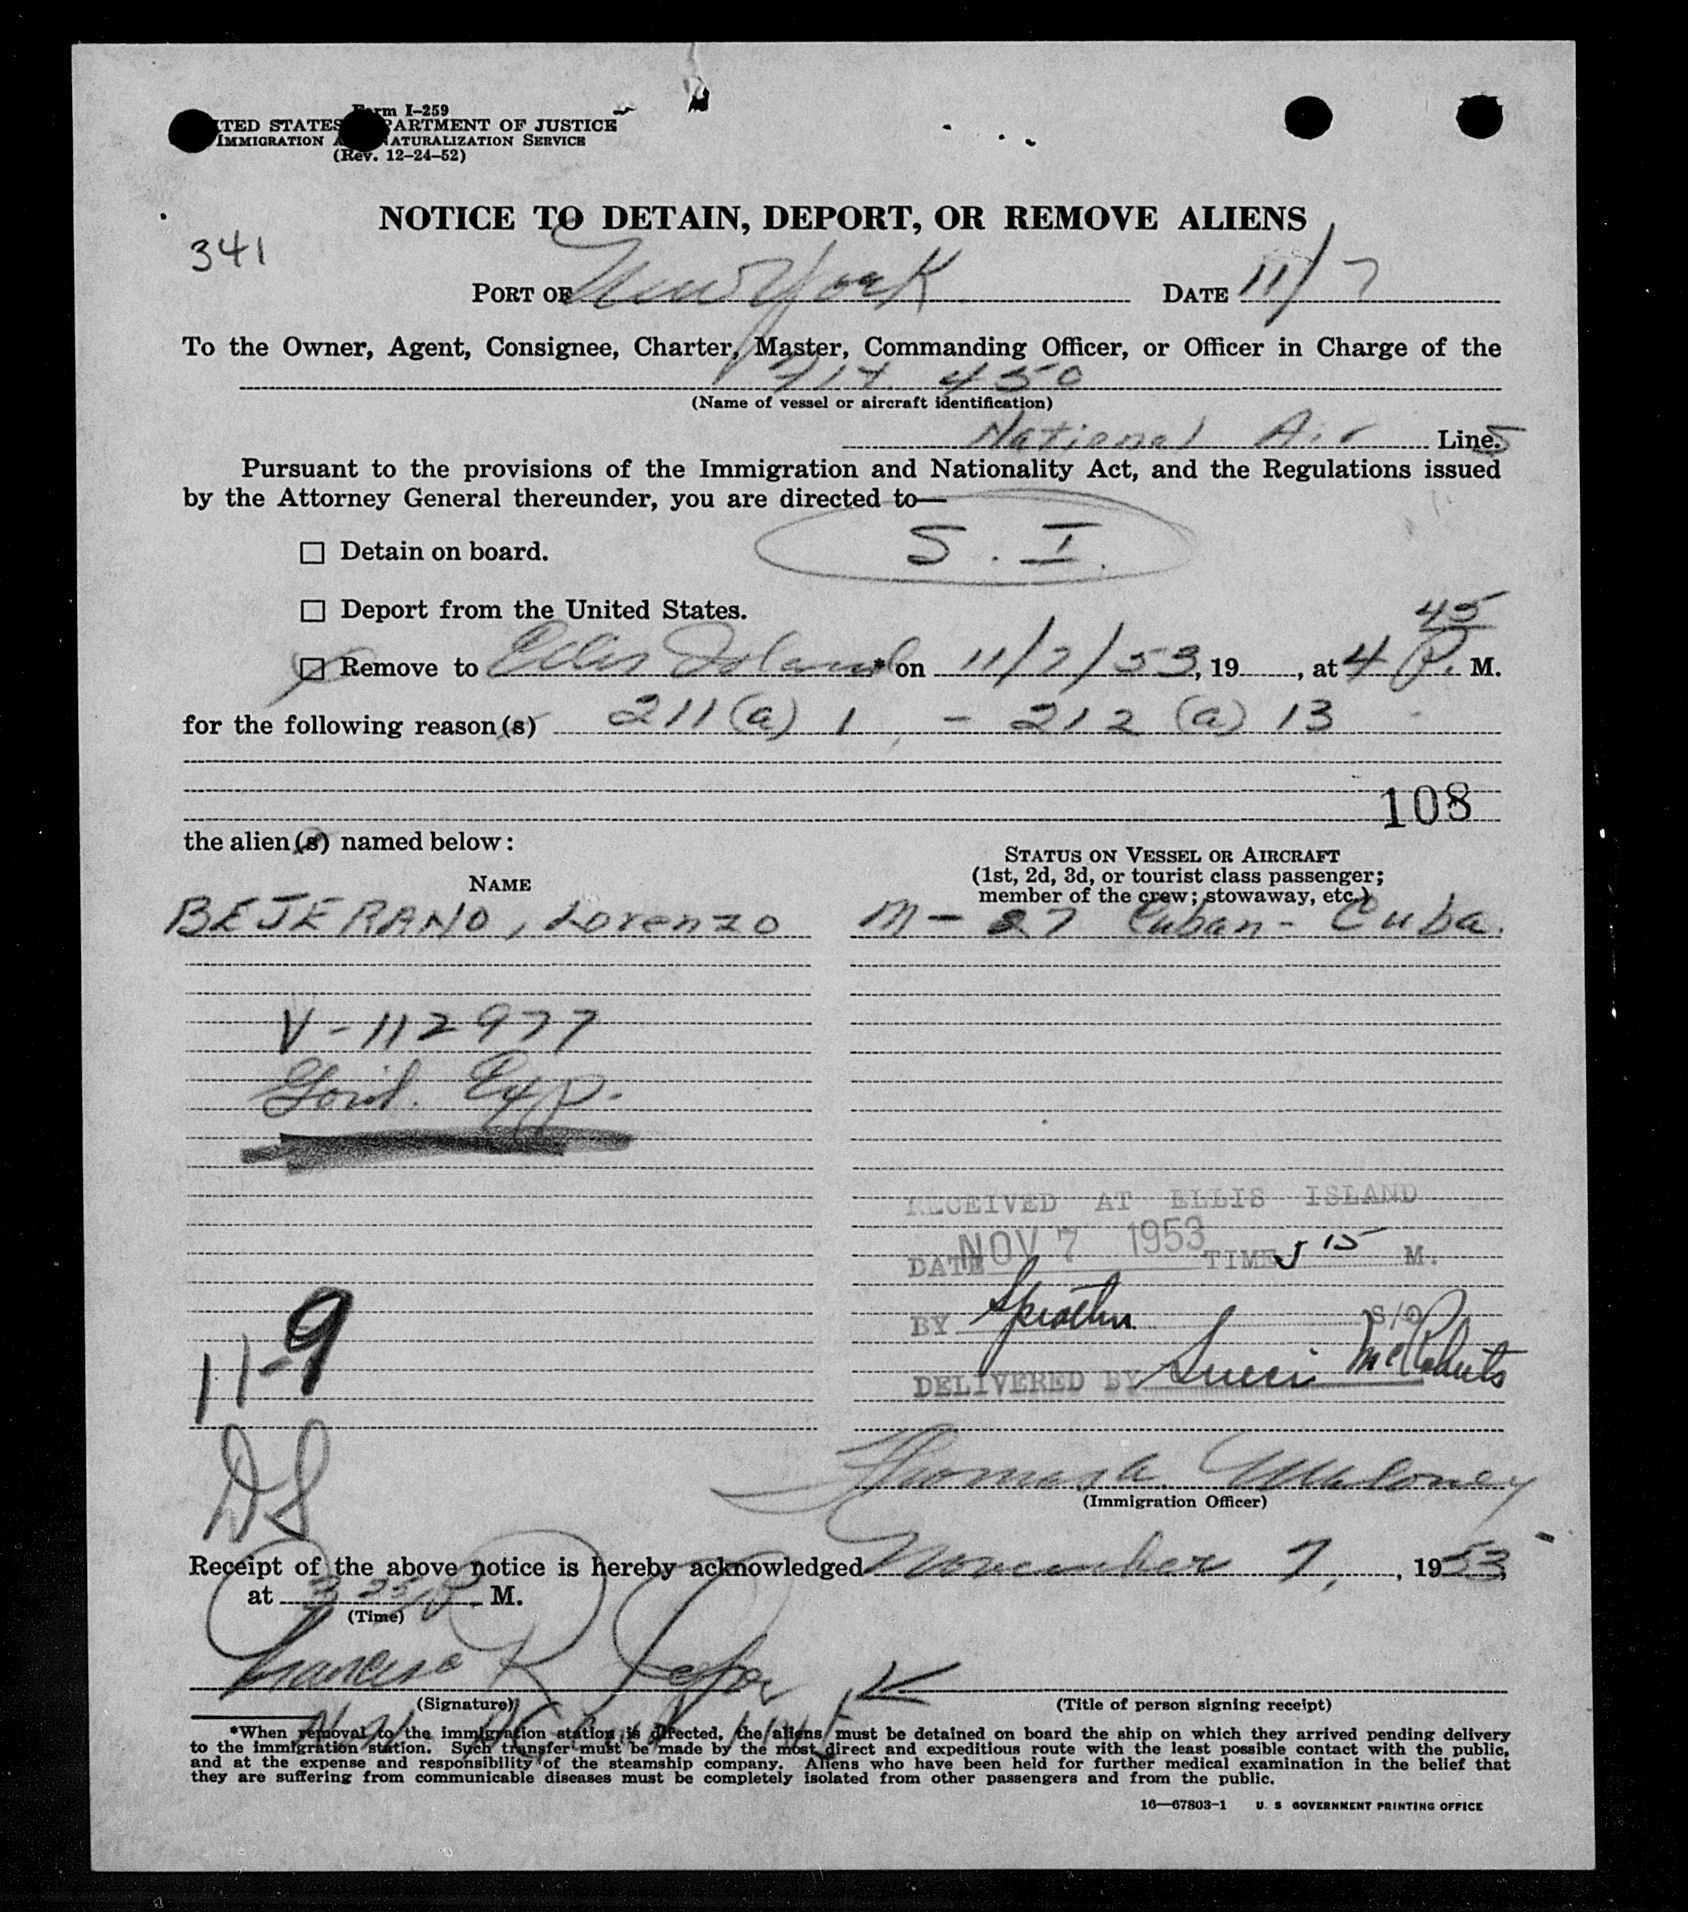 Form I-259
UNITED STATES DEPARTMENT OF JUSTICE
IMMIGRATION AND NATURALIZATION SERVICE
(Rev. 12-24-52)
NOTICE TO DETAIN, DEPORT, OR REMOVE ALIENS
341
PORT OF New York DATE 11/7
To the Owner, Agent, Consignee, Charter, Master, Commanding Officer, or Officer in Charge of the
Flt. 450
(Name of vessel or aircraft identification)
National Air Lines
Pursuant to the provisions of the Immigration and Nationality Act, and the Regulations issued
by the Attorney General thereunder, you are directed to—
S. I.
Detain on board.
Deport from the United States.
Remove to Ellis Island * on 11/7/53, 19 , at 4 45 P. M.
for the following reason(s) 211(a) 1 - 212 (a) 13
108
the alien(s) named below:
STATUS ON VESSEL OR AIRCRAFT
(1st, 2d, 3d, or tourist class passenger;
member of the crew; stowaway, etc.)
NAME
BEJERANO, Lorenzo M - 27 Cuban - Cuba.
V-112977
Gov't. Exp.
RECEIVED AT ELLIS ISLAND
DATE NOV 7 1953 TIME 5 15 M.
BY S/O
DELIVERED BY McRoberts
11-9
DS
Thomas A. Maloney
(Immigration Officer)
Receipt of the above notice is hereby acknowledged November 7, , 1953,
at 3 25 P. M.
(Time)
Francisco R.
(Signature)
(Title of person signing receipt)
*When removal to the immigration station is directed, the aliens must be detained on board the ship on which they arrived pending delivery
to the immigration station. Such transfer must be made by the most direct and expeditious route with the least possible contact with the public,
and at the expense and responsibility of the steamship company. Aliens who have been held for further medical examination in the belief that
they are suffering from communicable diseases must be completely isolated from other passengers and from the public.
16—67803-1 U. S. GOVERNMENT PRINTING OFFICE